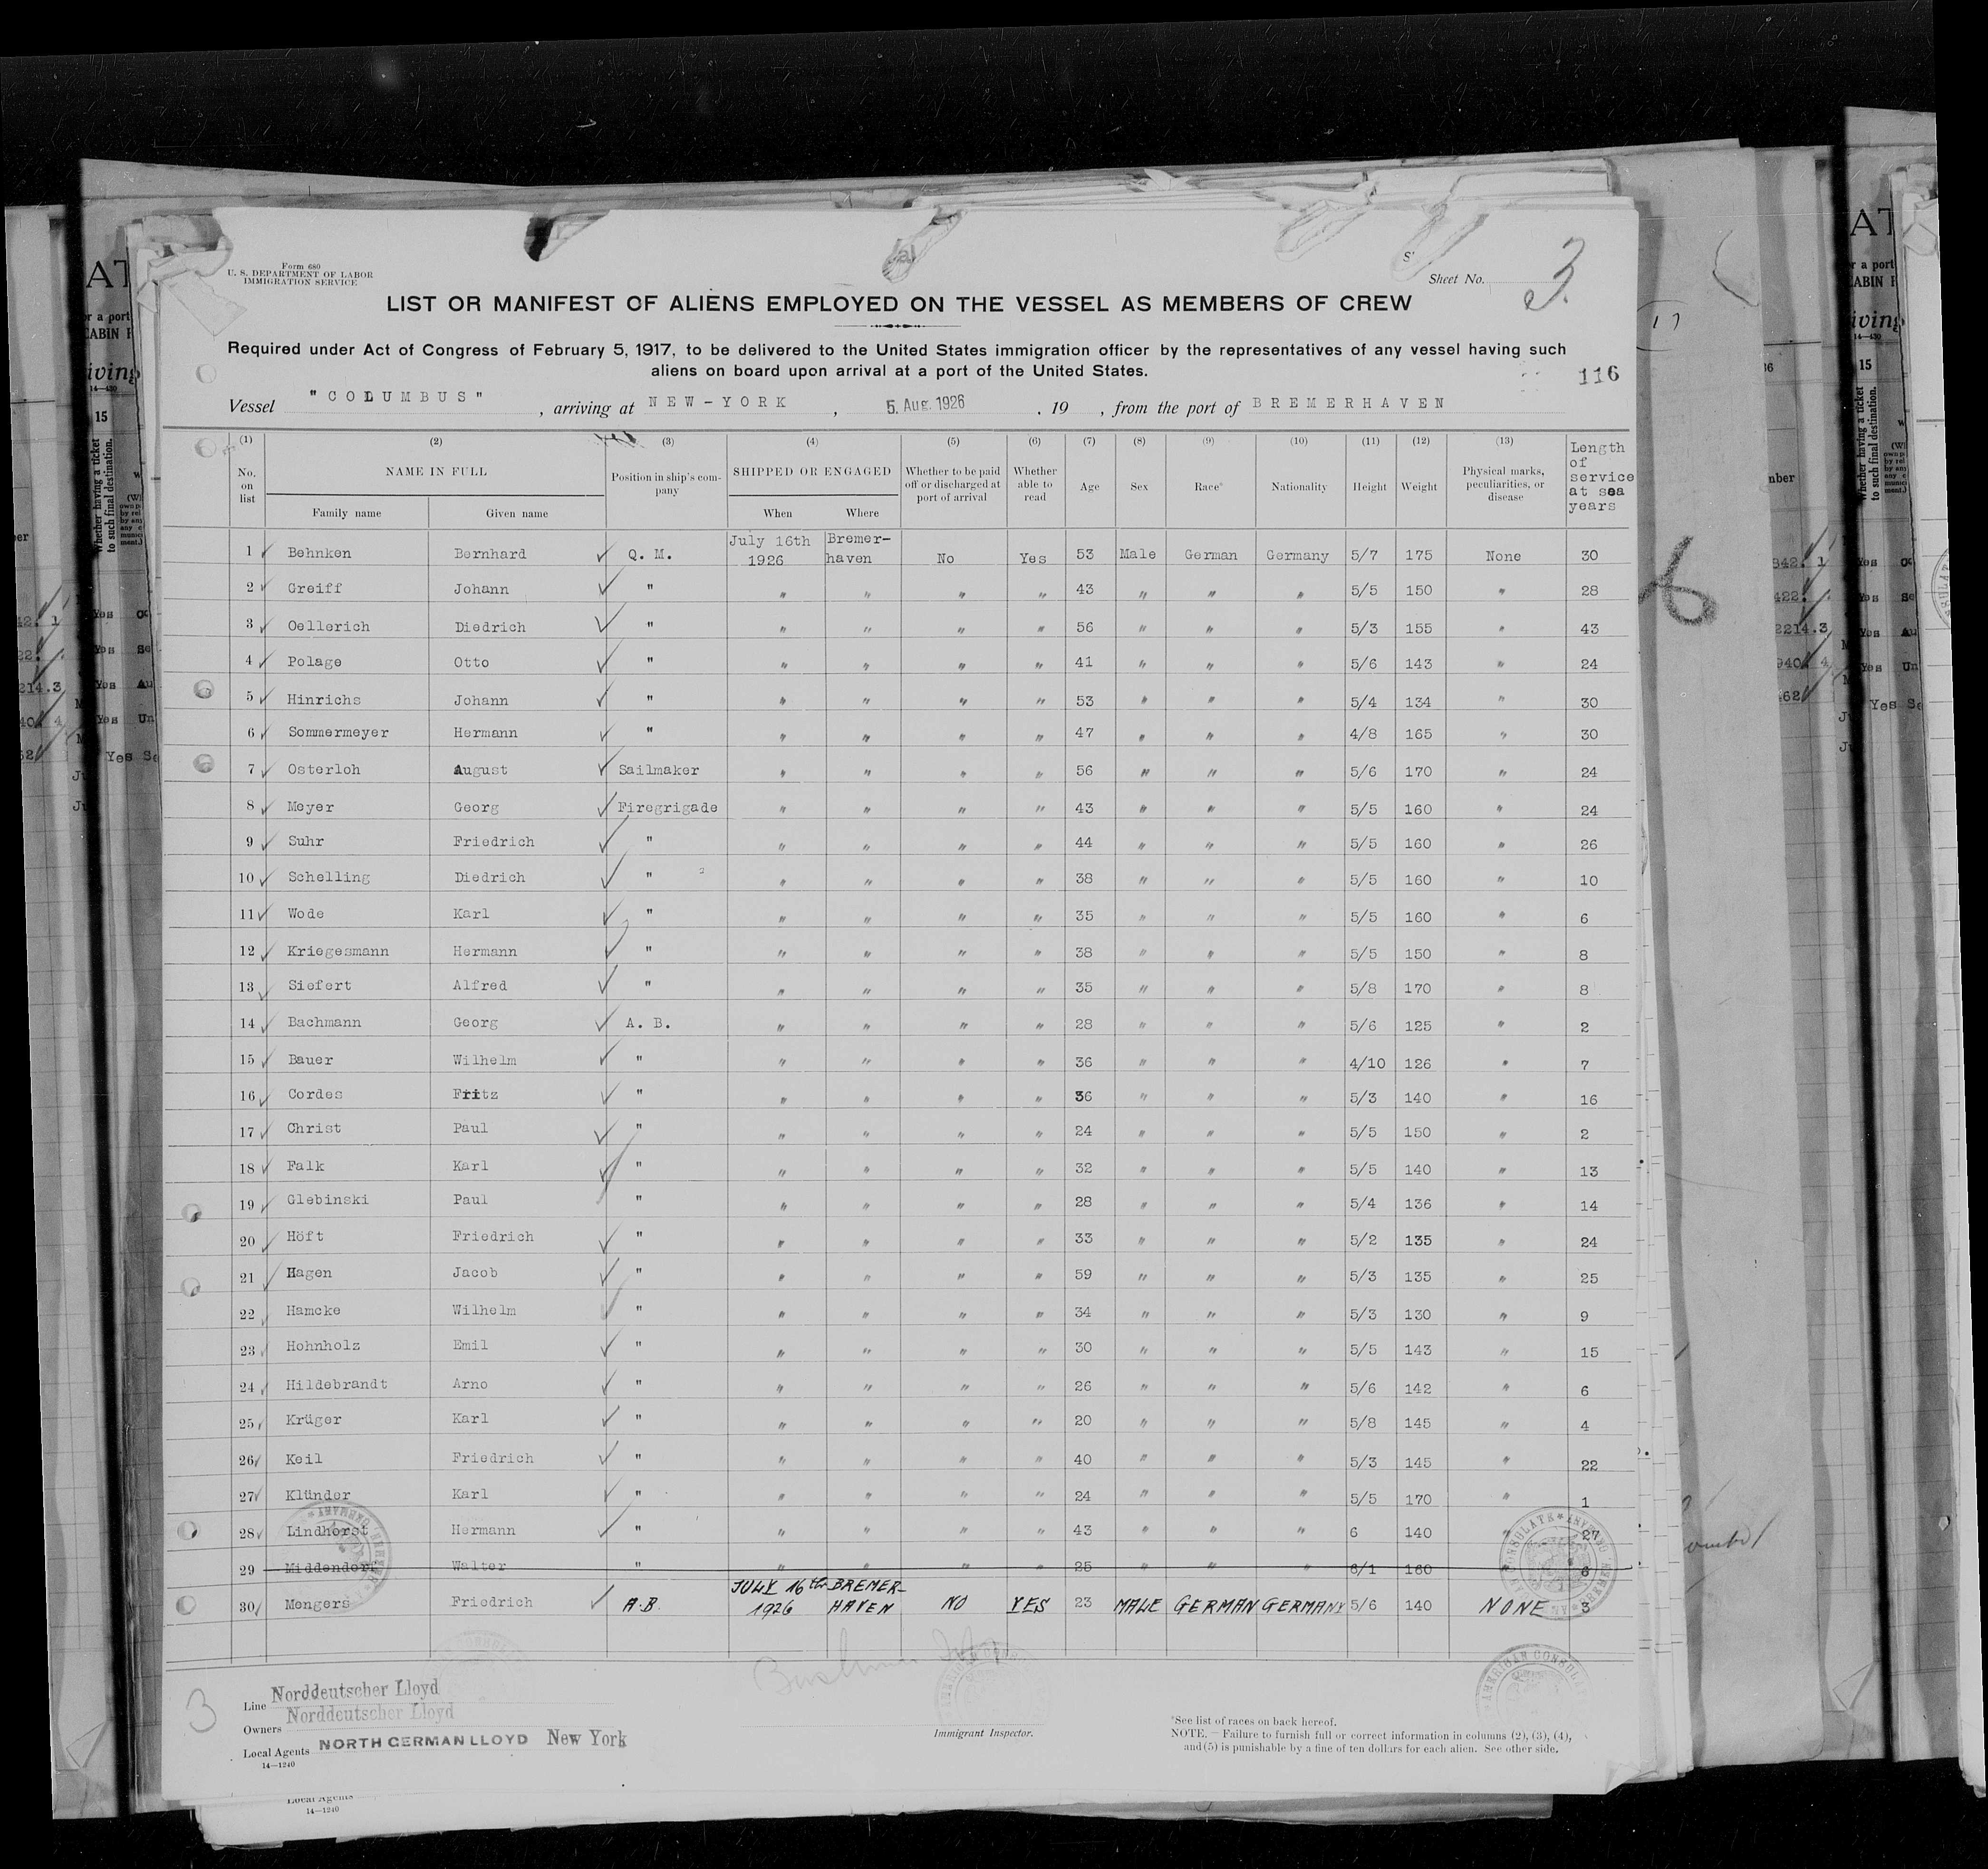 Form 680
U. S. DEPARTMENT OF LABOR
IMMIGRATION SERVICE
Sheet No. 3.
LIST OR MANIFEST OF ALIENS EMPLOYED ON THE VESSEL AS MEMBERS OF CREW
Required under Act of Congress of February 5, 1917, to be delivered to the United States immigration officer by the representatives of any vessel having such
aliens on board upon arrival at a port of the United States.
116
Vessel "COLUMBUS", arriving at NEW-YORK, 5. Aug. 1926, 19 , from the port of BREMERHAVEN
(1) (2) (3) (4) (5) (6) (7) (8) (9) (10) (11) (12) (13)
No. on list NAME IN FULL Family name Given name Position in ship's company SHIPPED OR ENGAGED When Where Whether to be paid off or discharged at port of arrival Whether able to read Age Sex Race* Nationality Height Weight Physical marks, peculiarities, or disease Length of service at sea years
1 Behnken Bernhard Q. M. July 16th 1926 Bremer-haven No Yes 53 Male German Germany 5/7 175 None 30
2 Greiff Johann " " " " " 43 " " " 5/5 150 " 28
3 Oellerich Diedrich " " " " " 56 " " " 5/3 155 " 43
4 Polage Otto " " " " " 41 " " " 5/6 143 " 24
5 Hinrichs Johann " " " " " 53 " " " 5/4 134 " 30
6 Sommermeyer Hermann " " " " " 47 " " " 4/8 165 " 30
7 Osterloh August Sailmaker " " " " 56 " " " 5/6 170 " 24
8 Meyer Georg Firegrigade " " " " 43 " " " 5/5 160 " 24
9 Suhr Friedrich " " " " " 44 " " " 5/5 160 " 26
10 Schelling Diedrich " " " " " 38 " " " 5/5 160 " 10
11 Wode Karl " " " " " 35 " " " 5/5 160 " 6
12 Kriegesmann Hermann " " " " " 38 " " " 5/5 150 " 8
13 Siefert Alfred " " " " " 35 " " " 5/8 170 " 8
14 Bachmann Georg A. B. " " " " 28 " " " 5/6 125 " 2
15 Bauer Wilhelm " " " " " 36 " " " 4/10 126 " 7
16 Cordes Fritz " " " " " 36 " " " 5/3 140 " 16
17 Christ Paul " " " " " 24 " " " 5/5 150 " 2
18 Falk Karl " " " " " 32 " " " 5/5 140 " 13
19 Glebinski Paul " " " " " 28 " " " 5/4 136 " 14
20 Höft Friedrich " " " " " 33 " " " 5/2 135 " 24
21 Hagen Jacob " " " " " 59 " " " 5/3 135 " 25
22 Hamcke Wilhelm " " " " " 34 " " " 5/3 130 " 9
23 Hohnholz Emil " " " " " 30 " " " 5/5 143 " 15
24 Hildebrandt Arno " " " " " 26 " " " 5/6 142 " 6
25 Krüger Karl " " " " " 20 " " " 5/8 145 " 4
26 Keil Friedrich " " " " " 40 " " " 5/3 145 " 22
27 Klünder Karl " " " " " 24 " " " 5/5 170 " 1
28 Lindhorst Hermann " " " " " 43 " " " 6 140 " 27
29 Middendorf Walter " " " " " 25 " " " 6/1 160 6
30 Mengers Friedrich A.B. JULY 16th 1926 BREMER-HAVEN NO YES 23 MALE GERMAN GERMANY 5/6 140 NONE 3
3
Line Norddeutscher Lloyd
Owners Norddeutscher Lloyd
Local Agents NORTH GERMAN LLOYD New York
14—1240
Immigrant Inspector.
*See list of races on back hereof.
NOTE.—Failure to furnish full or correct information in columns (2), (3), (4),
and (5) is punishable by a fine of ten dollars for each alien. See other side.
AMERICAN CONSULATE
Local Agents
14—1240